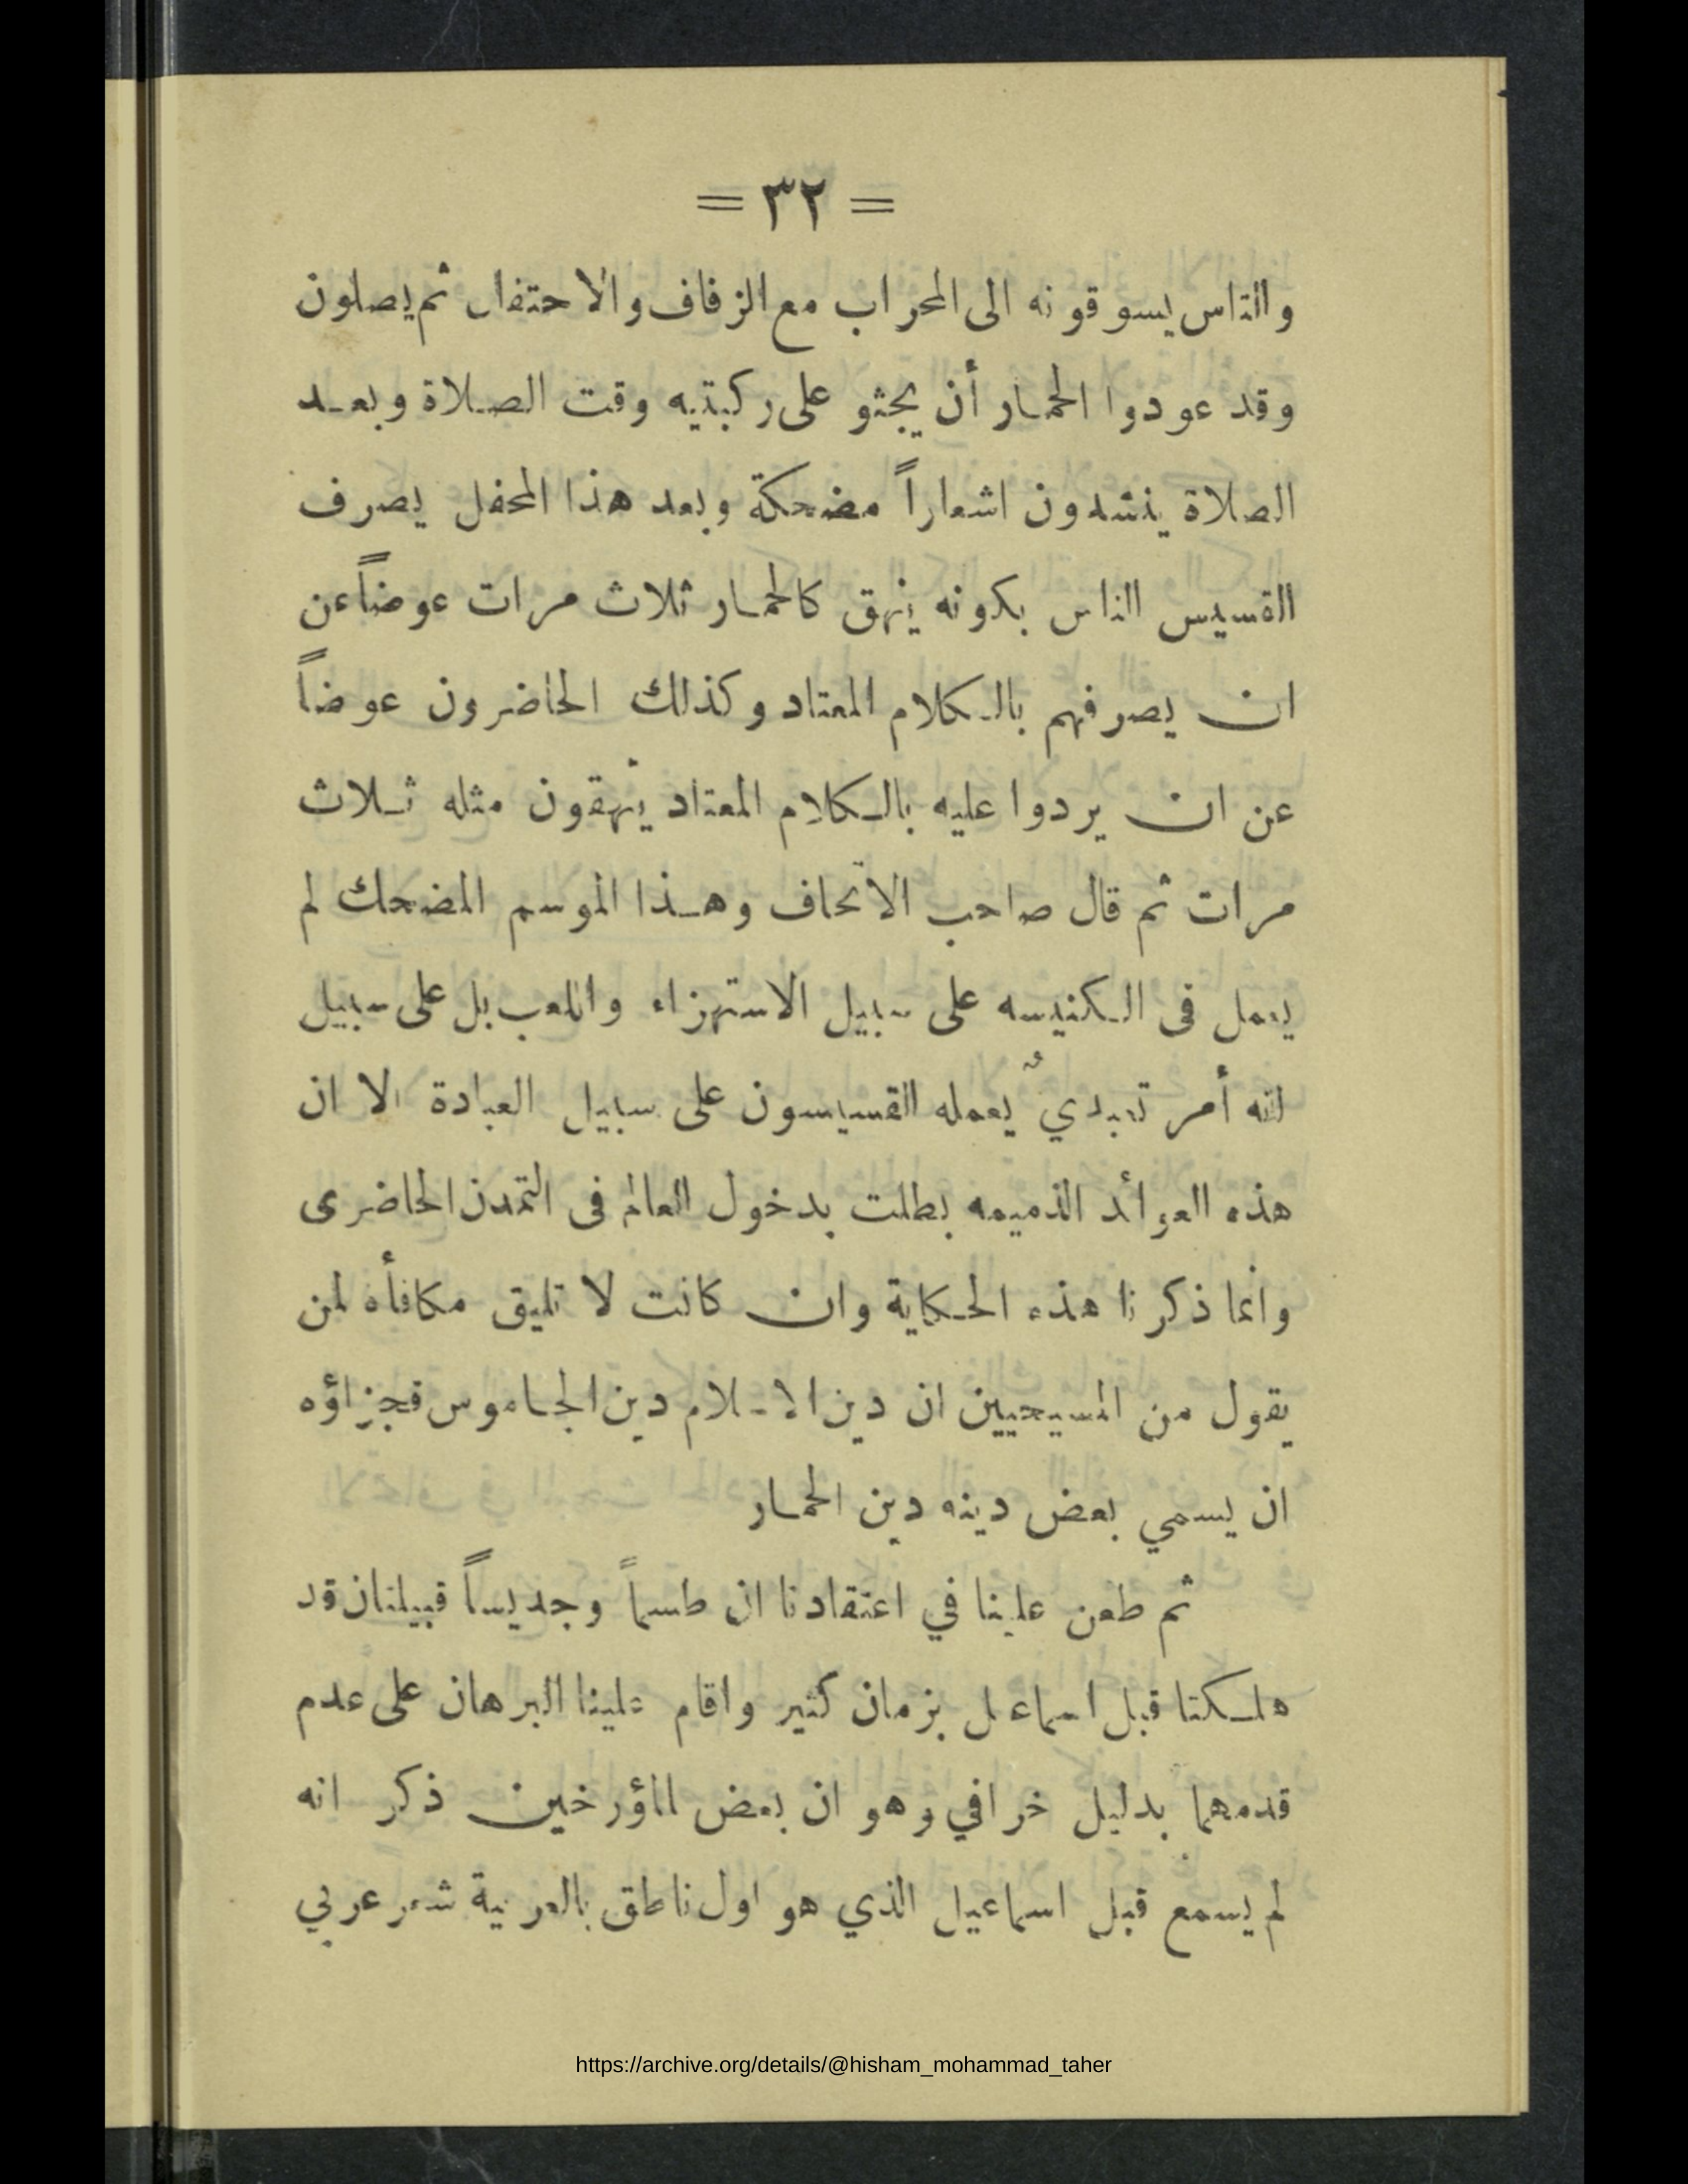 = ٣٢ =
والناس يسوقونه الى المحراب مع الزفاف والاحتفال ثم يصلون
وقد عودوا الحمار أن يجثو على ركبتيه وقت الصلاة وبعد
الصلاة ينشدون اشعاراً مضحكة وبعد هذا المحفل يصرف
القسيس الناس بكونه ينهق كالحمار ثلاث مرات عوضاً عن
ان يصرفهم بالكلام المعتاد وكذلك الحاضرون عوضاً
عن ان يردوا عليه بالكلام المعتاد ينهقون مثله ثلاث
مرات ثم قال صاحب الاتحاف وهذا الموسم المضحك لم
يعمل فى الكنيسه على سبيل الاستهزاء واللعب بل على سبيل
انه أمر تعبديٌ يعمله القسيسون على سبيل العبادة الا ان
هذه العوائد الذميمه بطلت بدخول العالم فى التمدن الحاضرى
وانما ذكرنا هذه الحكاية وان كانت لا تليق مكافأه لمن
يقول من المسيحيين ان دين الاسلام دين الجاموس فجزاؤه
ان يسمي بعض دينه دين الحمار
ثم طعن علينا في اعتقادنا ان طسماً وجديساً قبيلتان قد
هلكتا قبل اسماعيل بزمان كثير واقام علينا البرهان على عدم
قدمهما بدليل خرافي وهو ان بعض المؤرخين ذكر انه
لم يسمع قبل اسماعيل الذي هو اول ناطق بالعربية شعر عربي
https://archive.org/details/@hisham_mohammad_taher